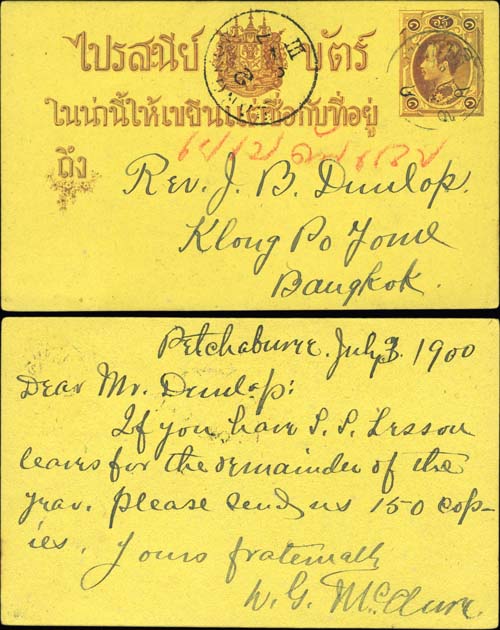 ไปรสนีย์ บัตร์
ในน่านี้ให้เขียนแต่ชื่อกับที่อยู่
ถึง
Rev. J. B. Dunlop.
Klong Po Yome
Bangkok.
Petchaburee. July 3. 1900
Dear Mr. Dunlop:
If you have S. S. Lesson
leaves for the remainder of the
year, please send us 150 cop-
ies. Yours fraternally
W. G. McClure.